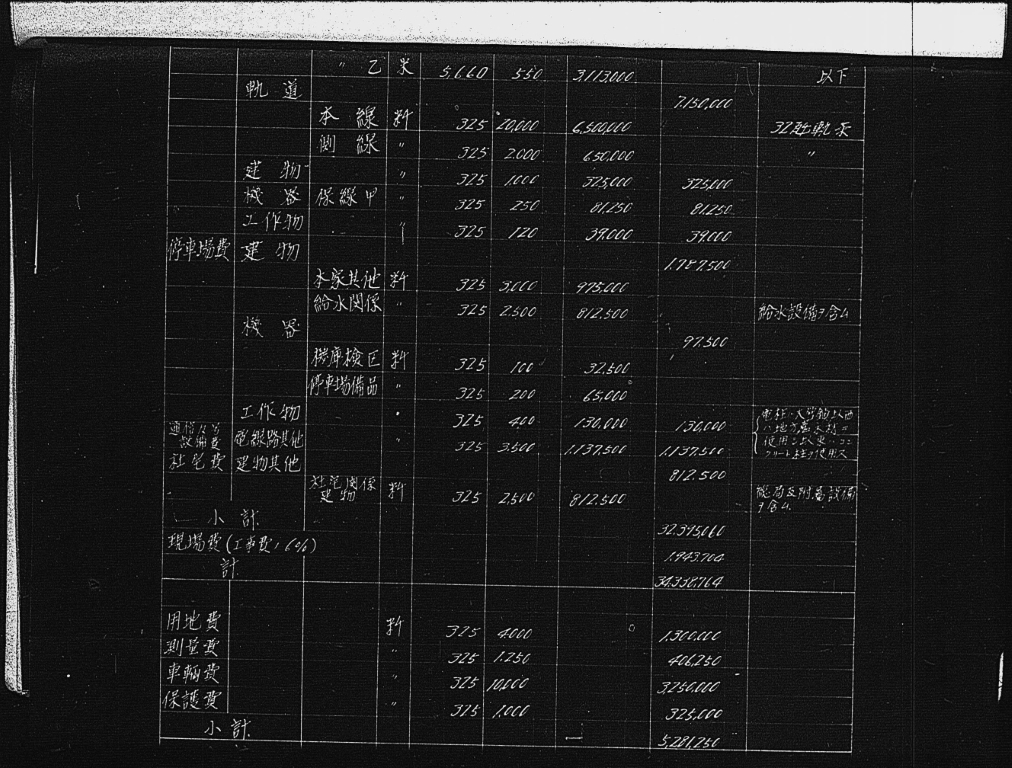 〃 乙 米 5,660 550 3,113,000 以下
軌道 7,150,000
本線 粁 325 20,000 6,500,000 32瓩軌条
側線 〃 325 2,000 650,000 〃
建物 〃 325 1,000 325,000 325,000
機器 保線甲 〃 325 250 81,250 81,250
工作物 〃 325 120 39,000 39,000
停車場費 建物 1,787,500
本家其他 粁 325 3,000 975,000
給水関係 〃 325 2,500 812,500 給水設備ヲ含ム
機器 97,500
機庫検区 粁 325 100 32,500
停車場備品 〃 325 200 65,000
工作物 〃 325 400 130,000 130,000
電線路其他 〃 325 3,500 1,137,500 1,137,500
社宅費 建物其他 812,500
社宅関係建物 粁 325 2,500 812,500
ヲ含ム
小計 32,395,060
現場費(工事費ノ6%) 1,943,704
計 34,338,764
用地費 粁 325 4,000 1,300,000
測量費 〃 325 1,250 406,250
車輛費 〃 325 10,000 3,250,000
保護費 〃 325 1,000 325,000
小計 5,281,250